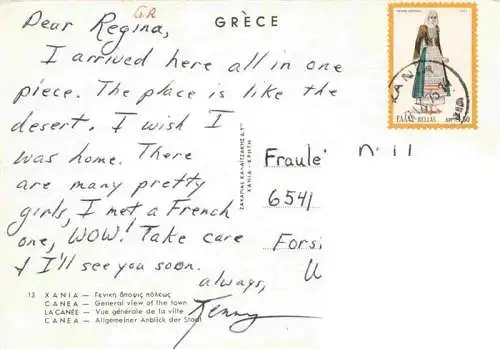 GR
GRÈCE
Dear Regina,
I arrived here all in one
piece. The place is like the
desert. I wish I
was home. There
are many pretty
girls, I met a French
one, WOW! Take care
& I'll see you soon.
always,
Kenny
Fraule
6541
Forsi
13 ΧΑΝΙΑ — Γενική άποψις πόλεως
CANEA — General view of the town
LA CANÉE — Vue générale de la ville
CANEA — Allgemeiner Anblick der Stadt
ΧΑΝΙΑ - ΚΡΗΤΗ
ΕΛΛΑΣ-HELLAS